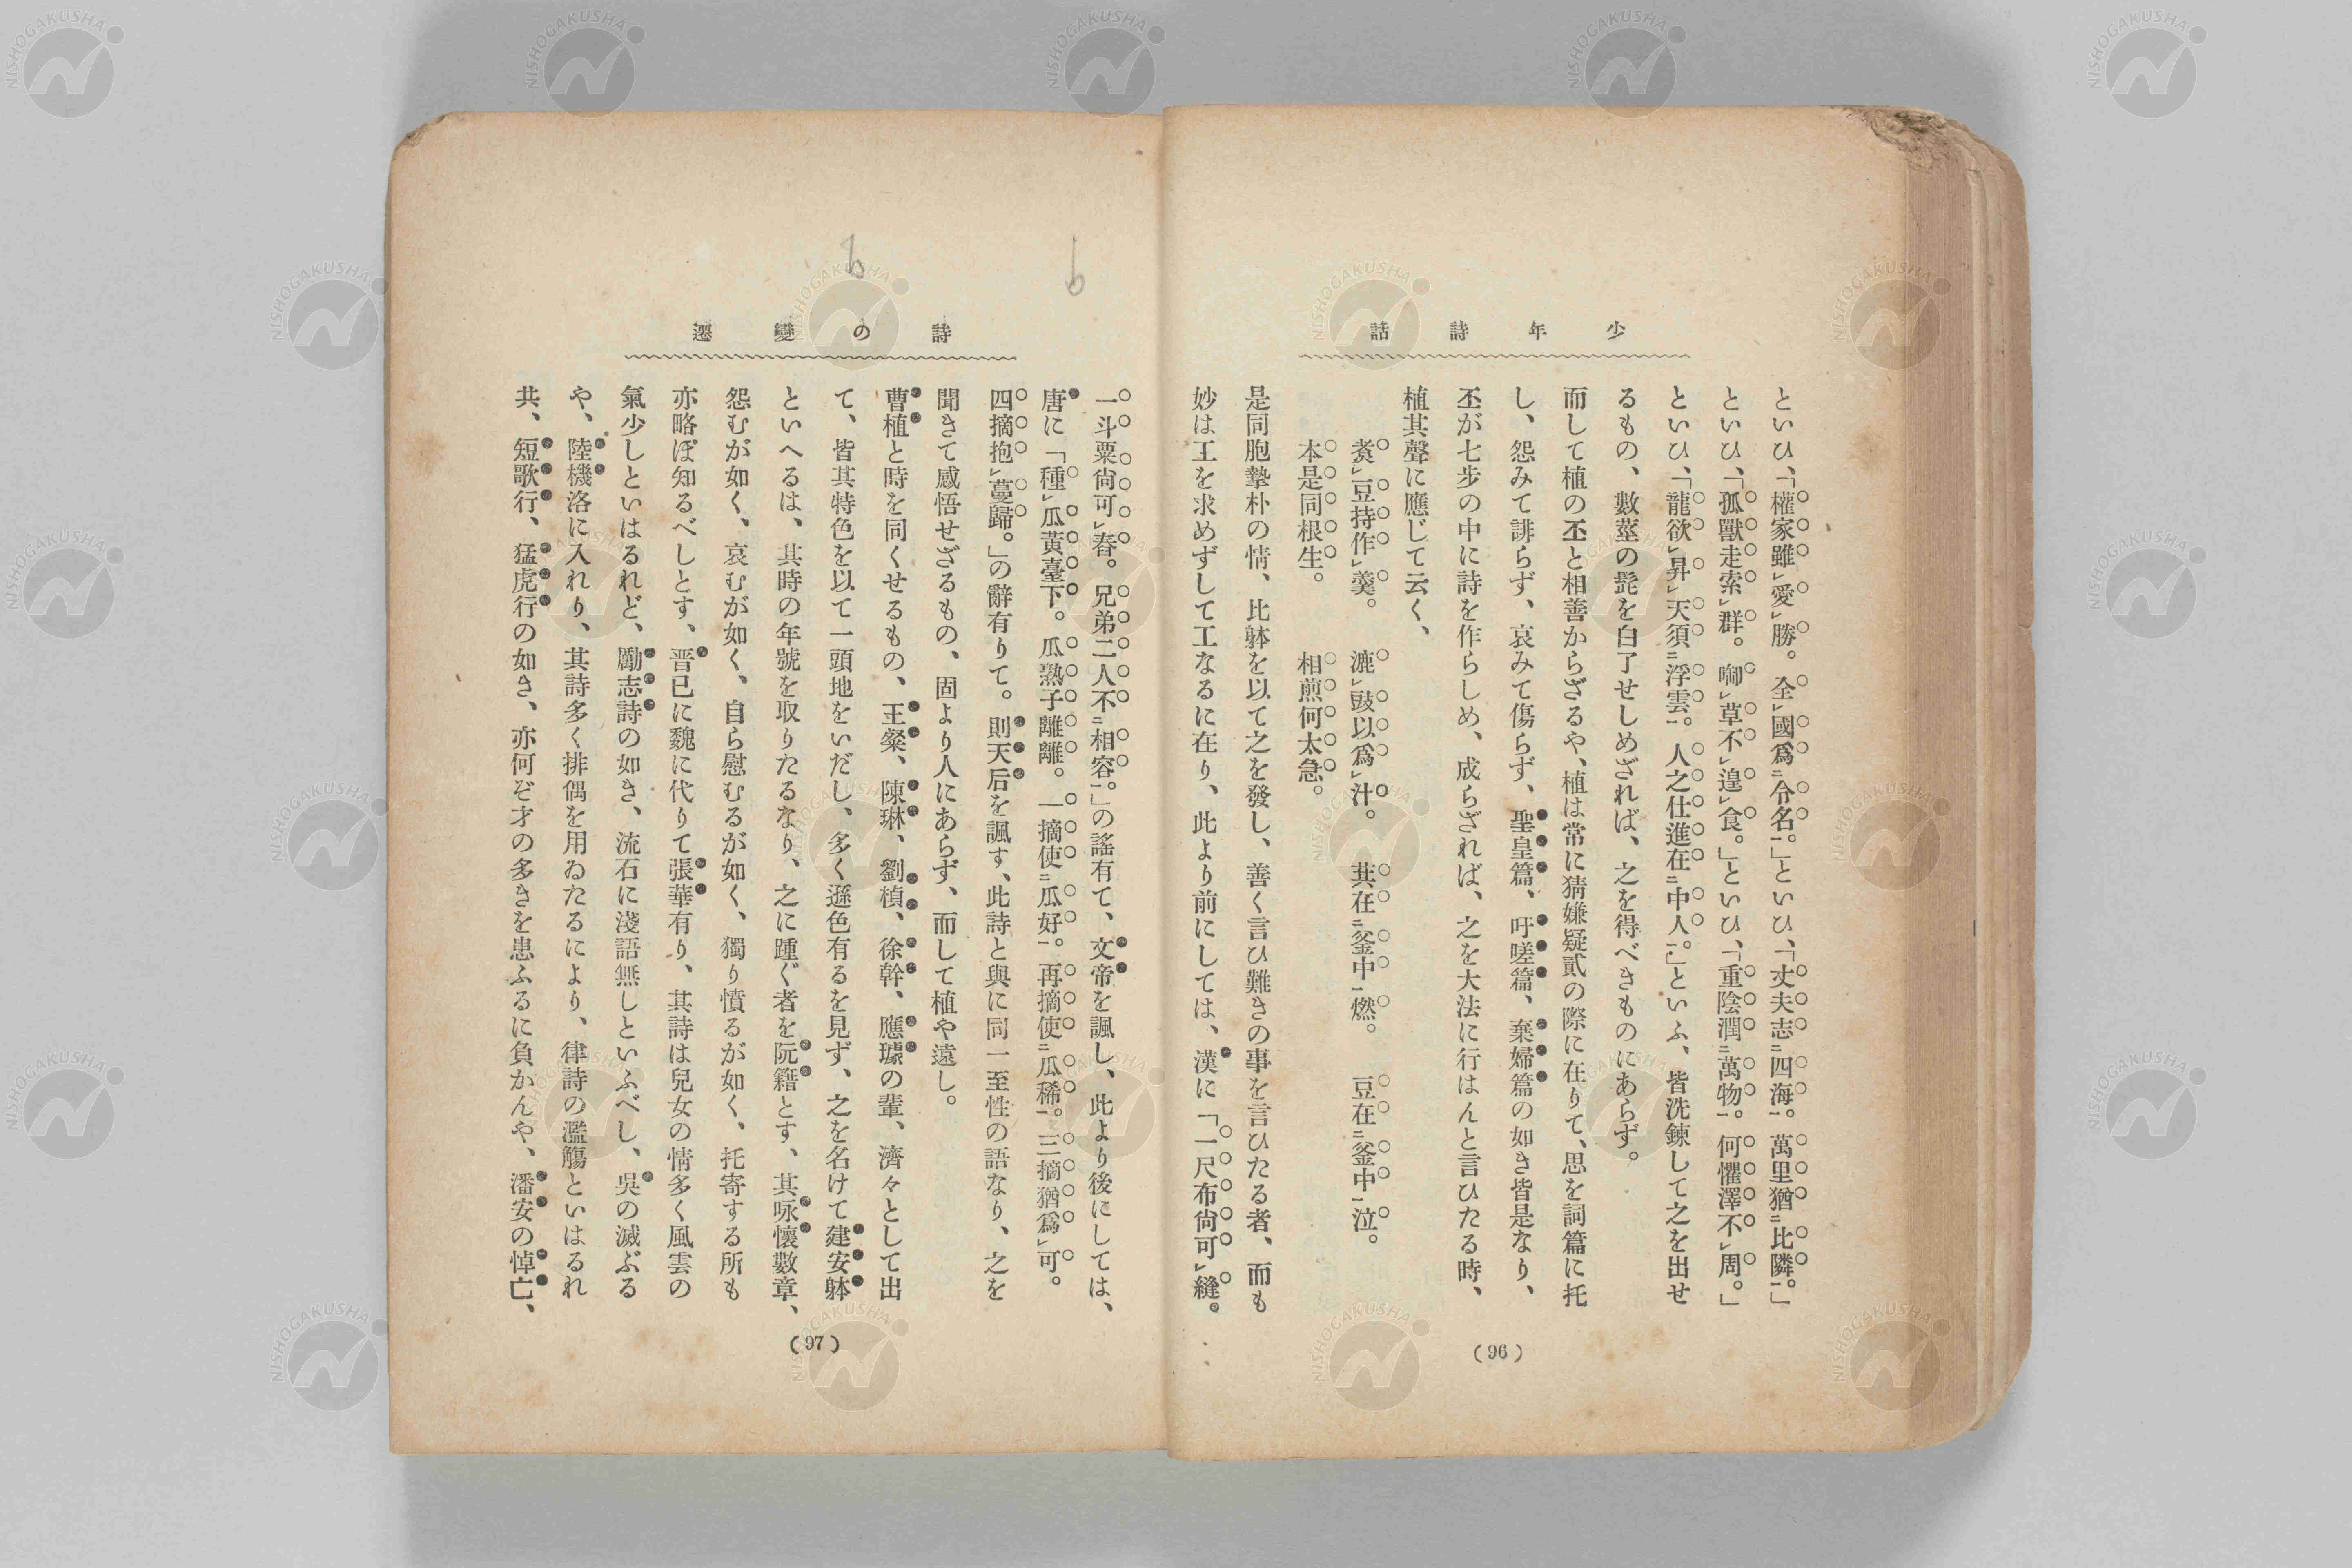 少年詩話
といひ、「權家雖レ愛レ勝。全レ國爲二令名一。」といひ、「丈夫志二四海一。萬里猶二比隣一。」
といひ、「孤獸走索レ群。啣レ草不レ遑レ食。」といひ、「重陰潤二萬物一。何懼澤不レ周。」
といひ、「龍欲レ昇レ天須二浮雲一。人之仕進在二中人一。」といふ、皆洗鍊して之を出せ
るもの、數莖の髭を白了せしめざれば、之を得べきものにあらず。
而して植の丕と相善からざるや、植は常に猜嫌疑貳の際に在りて、思を詞篇に托
し、怨みて誹らず、哀みて傷らず、聖皇篇、吁嗟篇、棄婦篇の如き皆是なり、
丕が七步の中に詩を作らしめ、成らざれば、之を大法に行はんと言ひたる時、
植其聲に應じて云く、
煑レ豆持作レ羹。 漉レ豉以爲レ汁。 萁在二釜中一燃。 豆在二釜中一泣。
本是同根生。 相煎何太急。
是同胞摯朴の情、比躰を以て之を發し、善く言ひ難きの事を言ひたる者、而も
妙は工を求めずして工なるに在り、此より前にしては、漢に「一尺布尙可レ縫。
(96)
詩の變遷
一斗粟尙可レ舂。兄弟二人不二相容一。」の謠有て、文帝を諷し、此より後にしては、
唐に「種レ瓜黃臺下。瓜熟子離離。一摘使二瓜好一。再摘使二瓜稀一。三摘猶爲レ可。
四摘抱レ蔓歸。」の辭有りて。則天后を諷す、此詩と與に同一至性の語なり、之を
聞きて感悟せざるもの、固より人にあらず、而して植や遠し。
曹植と時を同くせるもの、王粲、陳琳、劉楨、徐幹、應璩の輩、濟々として出
て、皆其特色を以て一頭地をいだし、多く遜色有るを見ず、之を名けて建安躰
といへるは、其時の年號を取りたるなり、之に踵ぐ者を阮籍とす、其咏懷數章、
怨むが如く、哀むが如く、自ら慰むるが如く、獨り憤るが如く、托寄する所も
亦略ぼ知るべしとす、晋已に魏に代りて張華有り、其詩は兒女の情多く風雲の
氣少しといはるれど、勵志詩の如き、流石に淺語無しといふべし、吳の滅ぶる
や、陸機洛に入れり、其詩多く排偶を用ゐたるにより、律詩の濫觴といはるれ
共、短歌行、猛虎行の如き、亦何ぞ才の多きを患ふるに負かんや、潘安の悼亡、
(97)
NISHOGAKUSHA